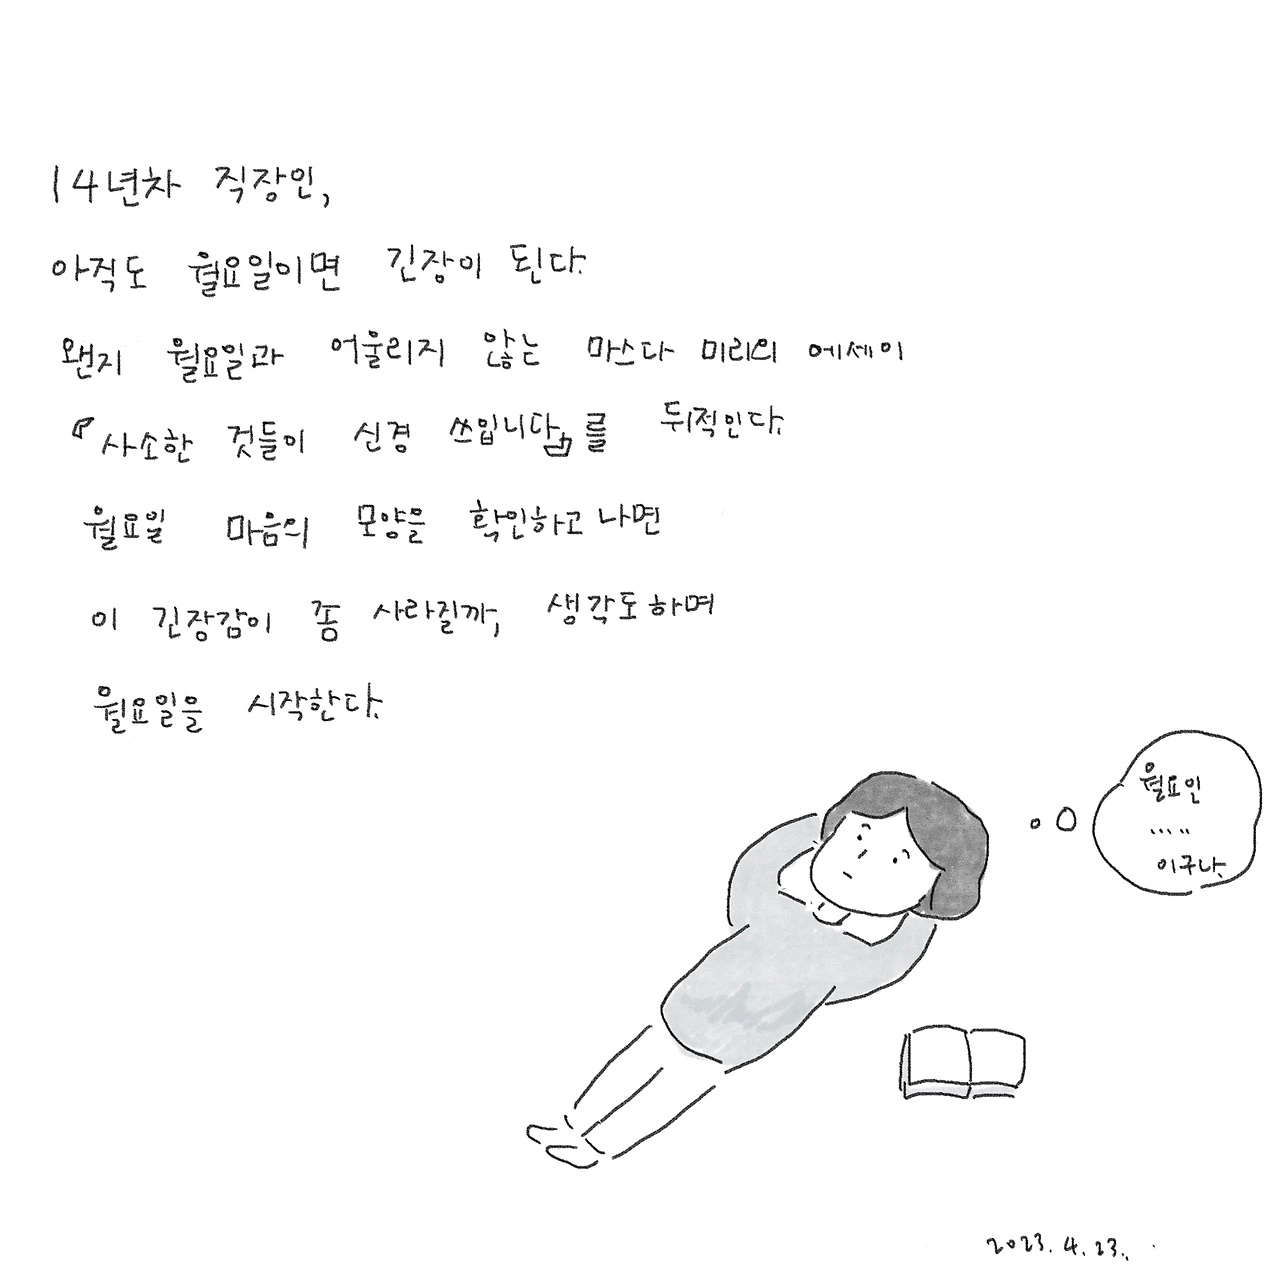 14년차 직장인,
아직도 월요일이면 긴장이 된다.
왠지 월요일과 어울리지 않는 마스다 미리의 에세이
『사소한 것들이 신경 쓰입니다』를 뒤적인다.
월요일 마음의 모양을 확인하고 나면
이 긴장감이 좀 사라질까, 생각도 하며
월요일을 시작한다.
월요일
.....
이구나.
2023. 4. 23.